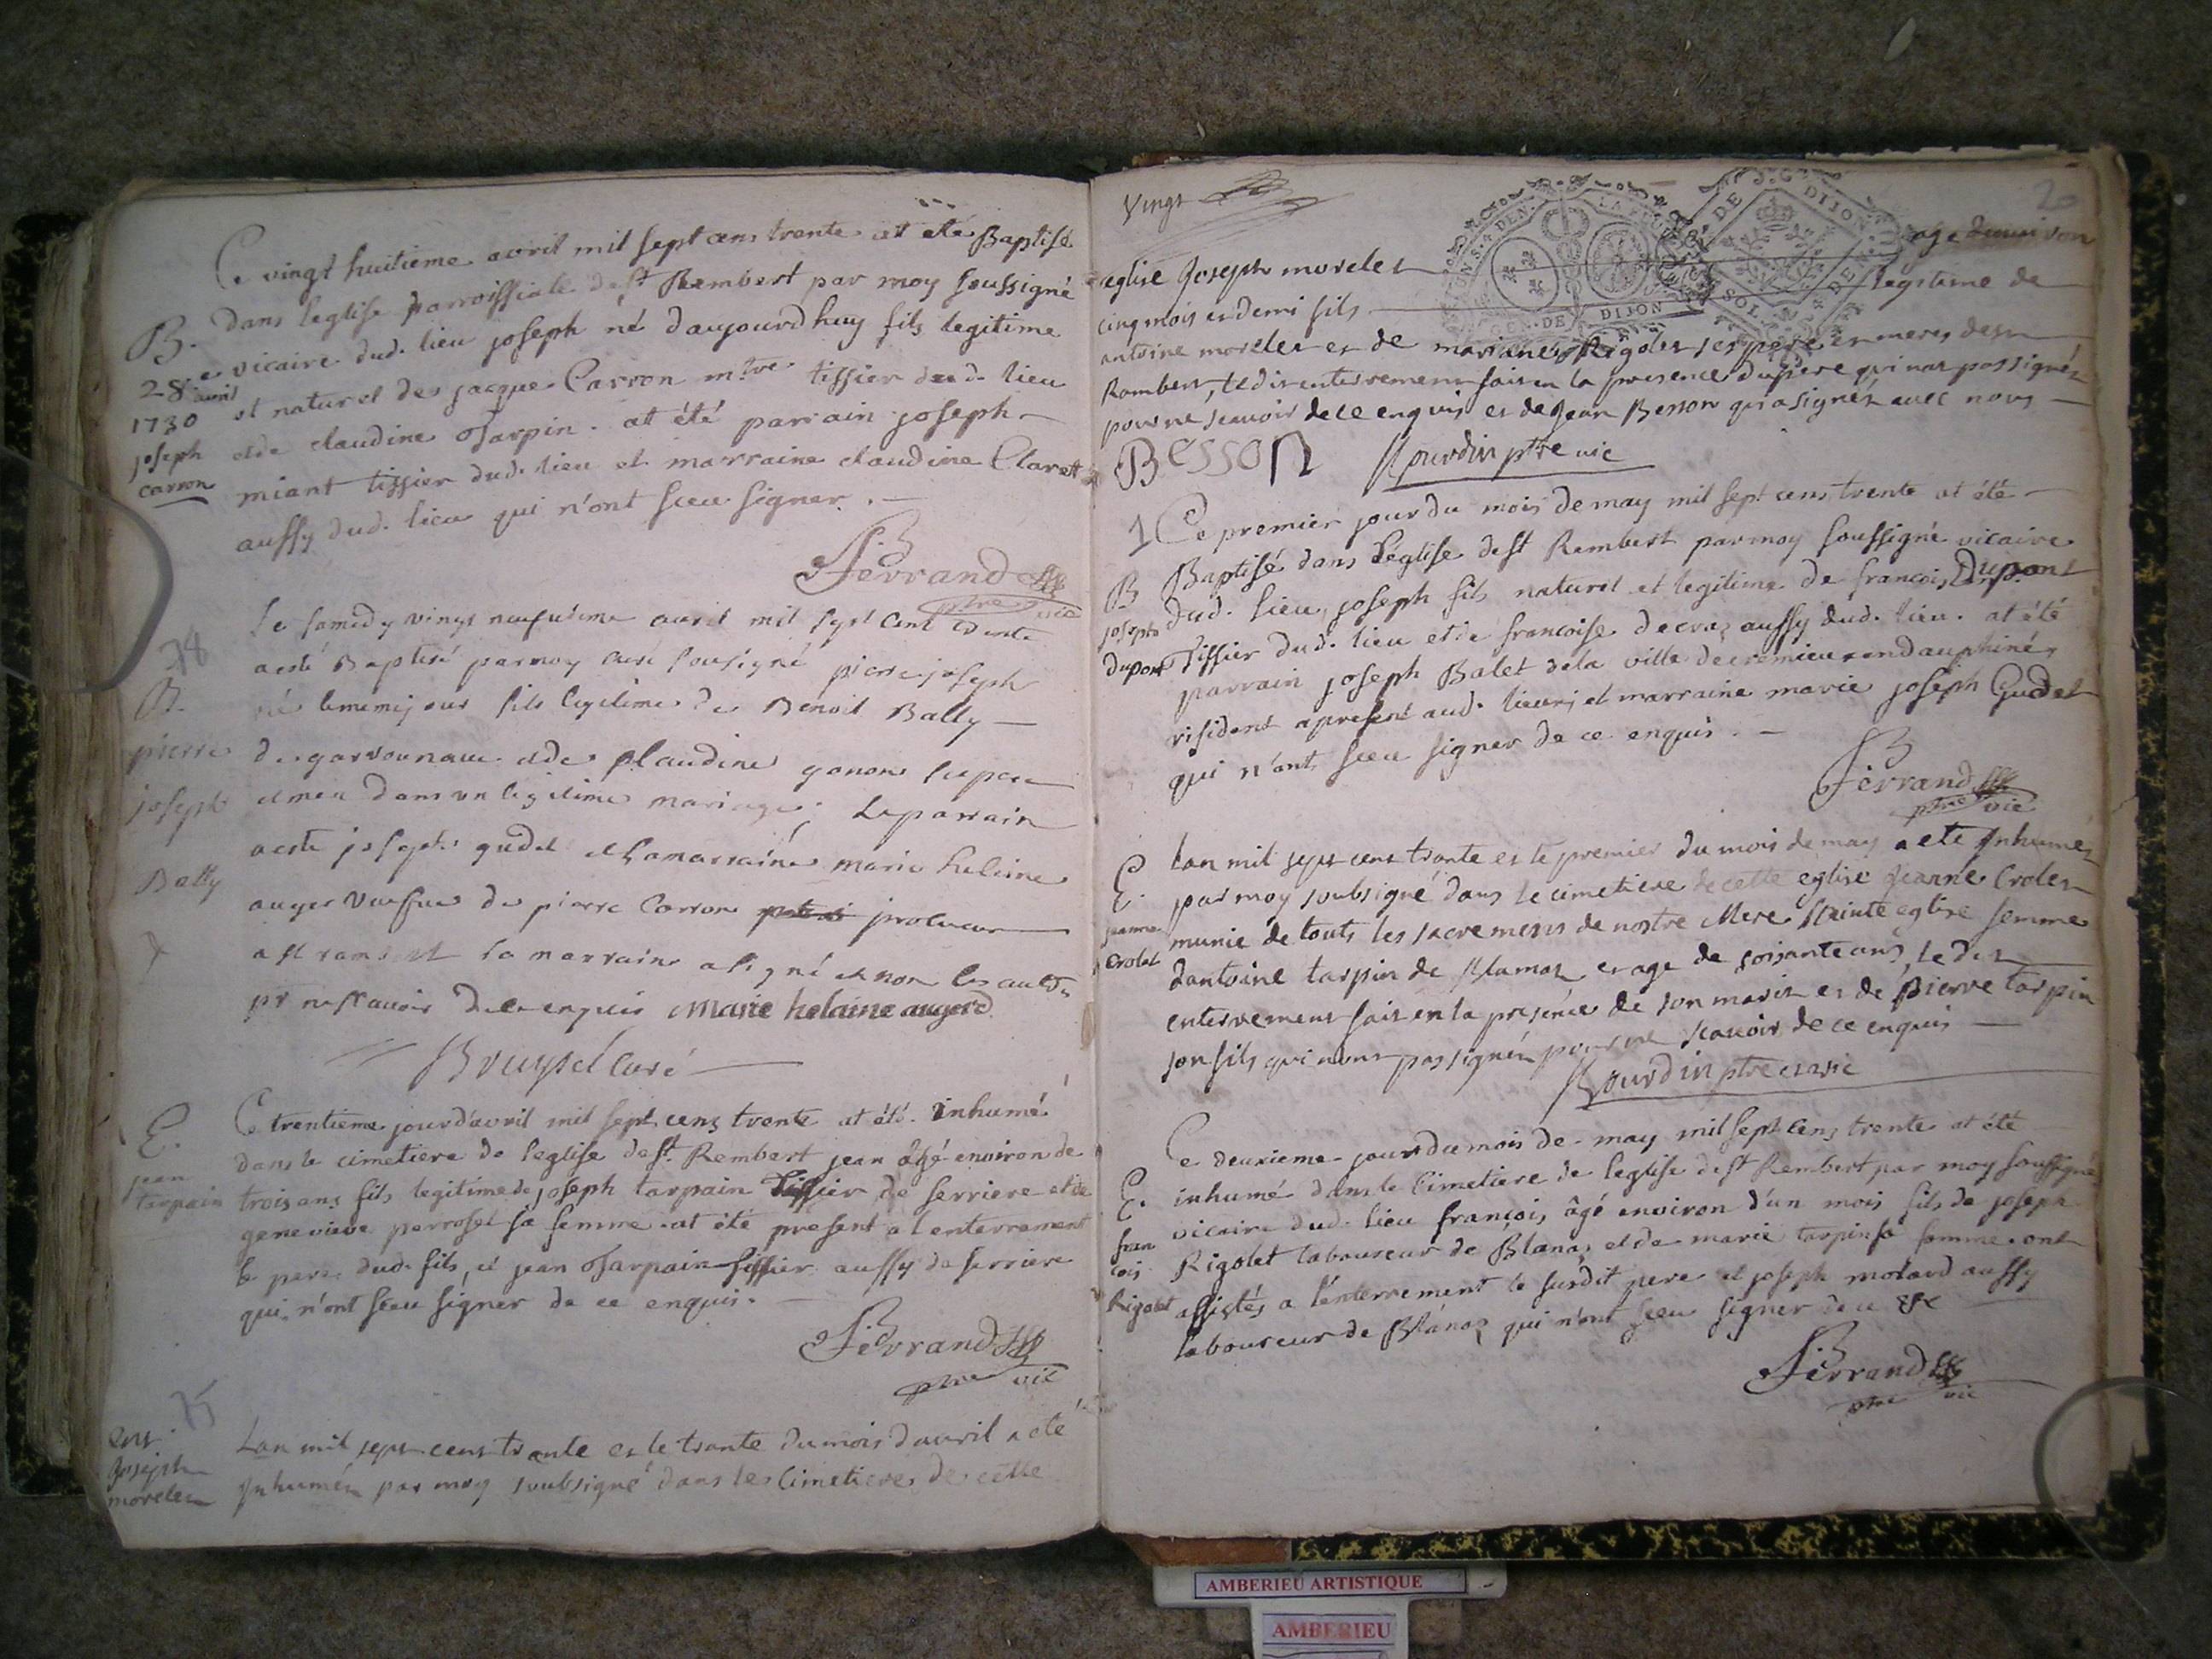 Ce vingt huitieme avril mil sept cens trente at eté Baptisé
dans leglise parroissiale de st Rembert par moy soussigné
vicaire dud. lieu joseph né daujourdhuy fils legitime
et naturel de jacque Carron mtre tissier dud. lieu
et de claudine Tarpin. at été parrain joseph
miant tissier dud. lieu et marraine claudine Claret
aussy dud. lieu qui n'ont sceu signer.
B.
28e avril
1730
joseph
carron
Ferrand
ptre vic
Le samedy vingt neufvieme avril mil sept cent trente
aesté Baptisé par moy curé sousigné pierre joseph
né le mesme jour fils legitime de Benoit Bally
de et de Claudine gonon ses pere
et mere dans un legitime mariage; Le parrain
aesté joseph gudet et la marraine marie helene
auger veufve de pierre Carron procureur
a st rambert la marraine a signé et non les autres
pr ne scavoir de ce enquis Marie helaine augerd
78
B.
pierre
joseph
Bally
Bruyset Curé
Ce trentieme jour d'avril mil sept cens trente at été inhumé
dans le cimetiere de l'eglise de st. Rembert jean âgé environ de
trois ans fils legitime de joseph tarpain Tissier de serriere et de
genevieve perroset sa femme. at été present a l'enterrement
le pere dud. fils, et jean Tarpain tissier aussy de serriere
qui n'ont sceu signer de ce enquis.
E.
jean
tarpain
Ferrand
ptre vic
75
ent.
Joseph
morelet
Lan mil sept cent trante et le trante du mois d'auril a eté
Inhumés par moy soubsigné dans le Cimetiere de cette
Vingt
20
GEN. DE DIJON
eglise Joseph morelet age denviron
cinq mois et demi fils legitime de
antoine morelet et de mariane Rigolet ses pere et meres de st
Rambert, le dit enterrement fait en la presence du pere qui nat pas signés
pour ne scauoir de ce enquis et de Jean Besson qui a signés auec nous
BESSON Jourdin ptre vic
1 Ce premier jour du mois de may mil sept cens trente at été
Baptisé dans l'église de st Rembert par moy soussigné vicaire
dud. lieu, joseph fils naturel et legitime de francois Dupont
Tissier dud. lieu et de francoise decraz aussy dud. lieu. at été
parrain joseph Balet de la ville de cremieux en dauphiné,
residant apresent aud. lieu; et marraine marie joseph Gudet
qui n'ont sceu signer de ce enquis.
B
joseph
dupont
Ferrand
ptre vic
Lan mil sept cent trante et le premier du mois de may a eté Inhumés
par moy soubsigné dans le cimetiere de cette eglise Jeanne Crolet
munie de touts les sacrements de nostre Mere Sainte eglise femme
dantoine tarpin de Blanaz et age de soisante ans, le dit
enterrement fait en la presence de son marit et de Pierre tarpin
son fils qui nont pas signés pour ne scauoir de ce enquis
E.
jeanne
crolet
Jourdin ptre et vic
Ce deuxieme jour du mois de may mil sept cens trente at été
inhumé dans le Cimetiere de leglise de st Rembert, par moy soussigné
vicaire dud. lieu françois, âgé environ d'un mois fils de joseph
Rigolet laboureur de Blanaz et de marie tarpin sa femme. ont
assistés a l'enterrement le susdit pere et joseph molard aussy
laboureur de Blánaz qui n'ont sceu signer de ce &c
E.
fran
cois
Rigolet
Ferrand
ptre vic
AMBERIEU ARTISTIQUE
AMBERIEU